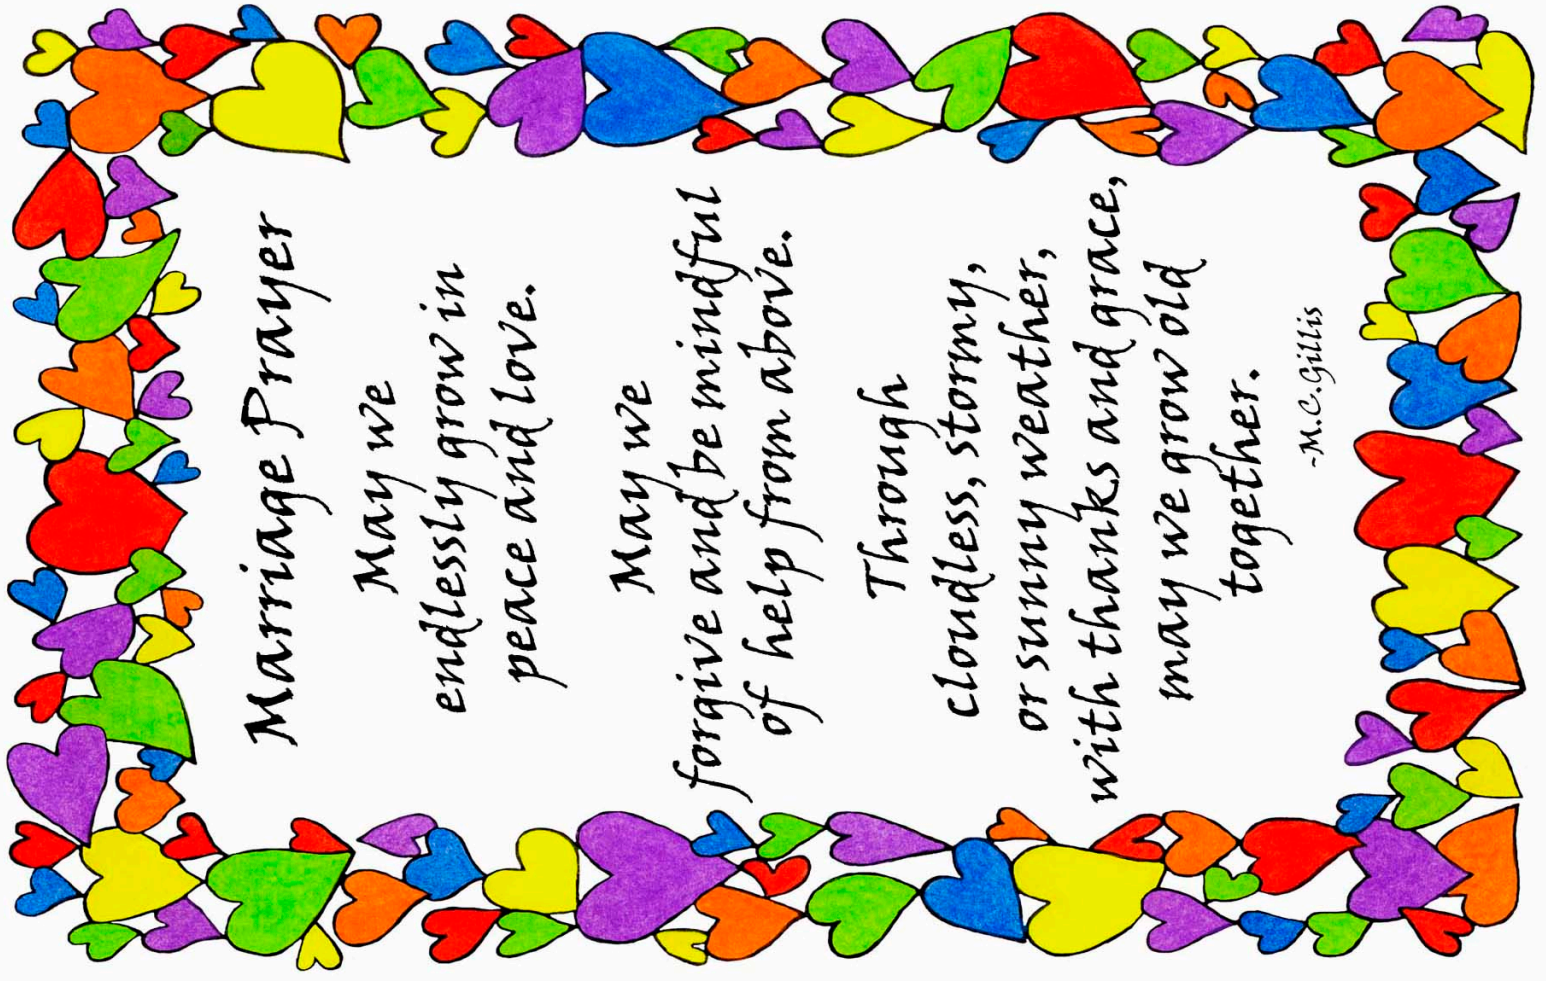 Marriage Prayer
May we
endlessly grow in
peace and love.
May we
forgive and be mindful
of help from above.
Through
cloudless, stormy,
or sunny weather,
with thanks and grace,
may we grow old
together.
~M.C.Gillis